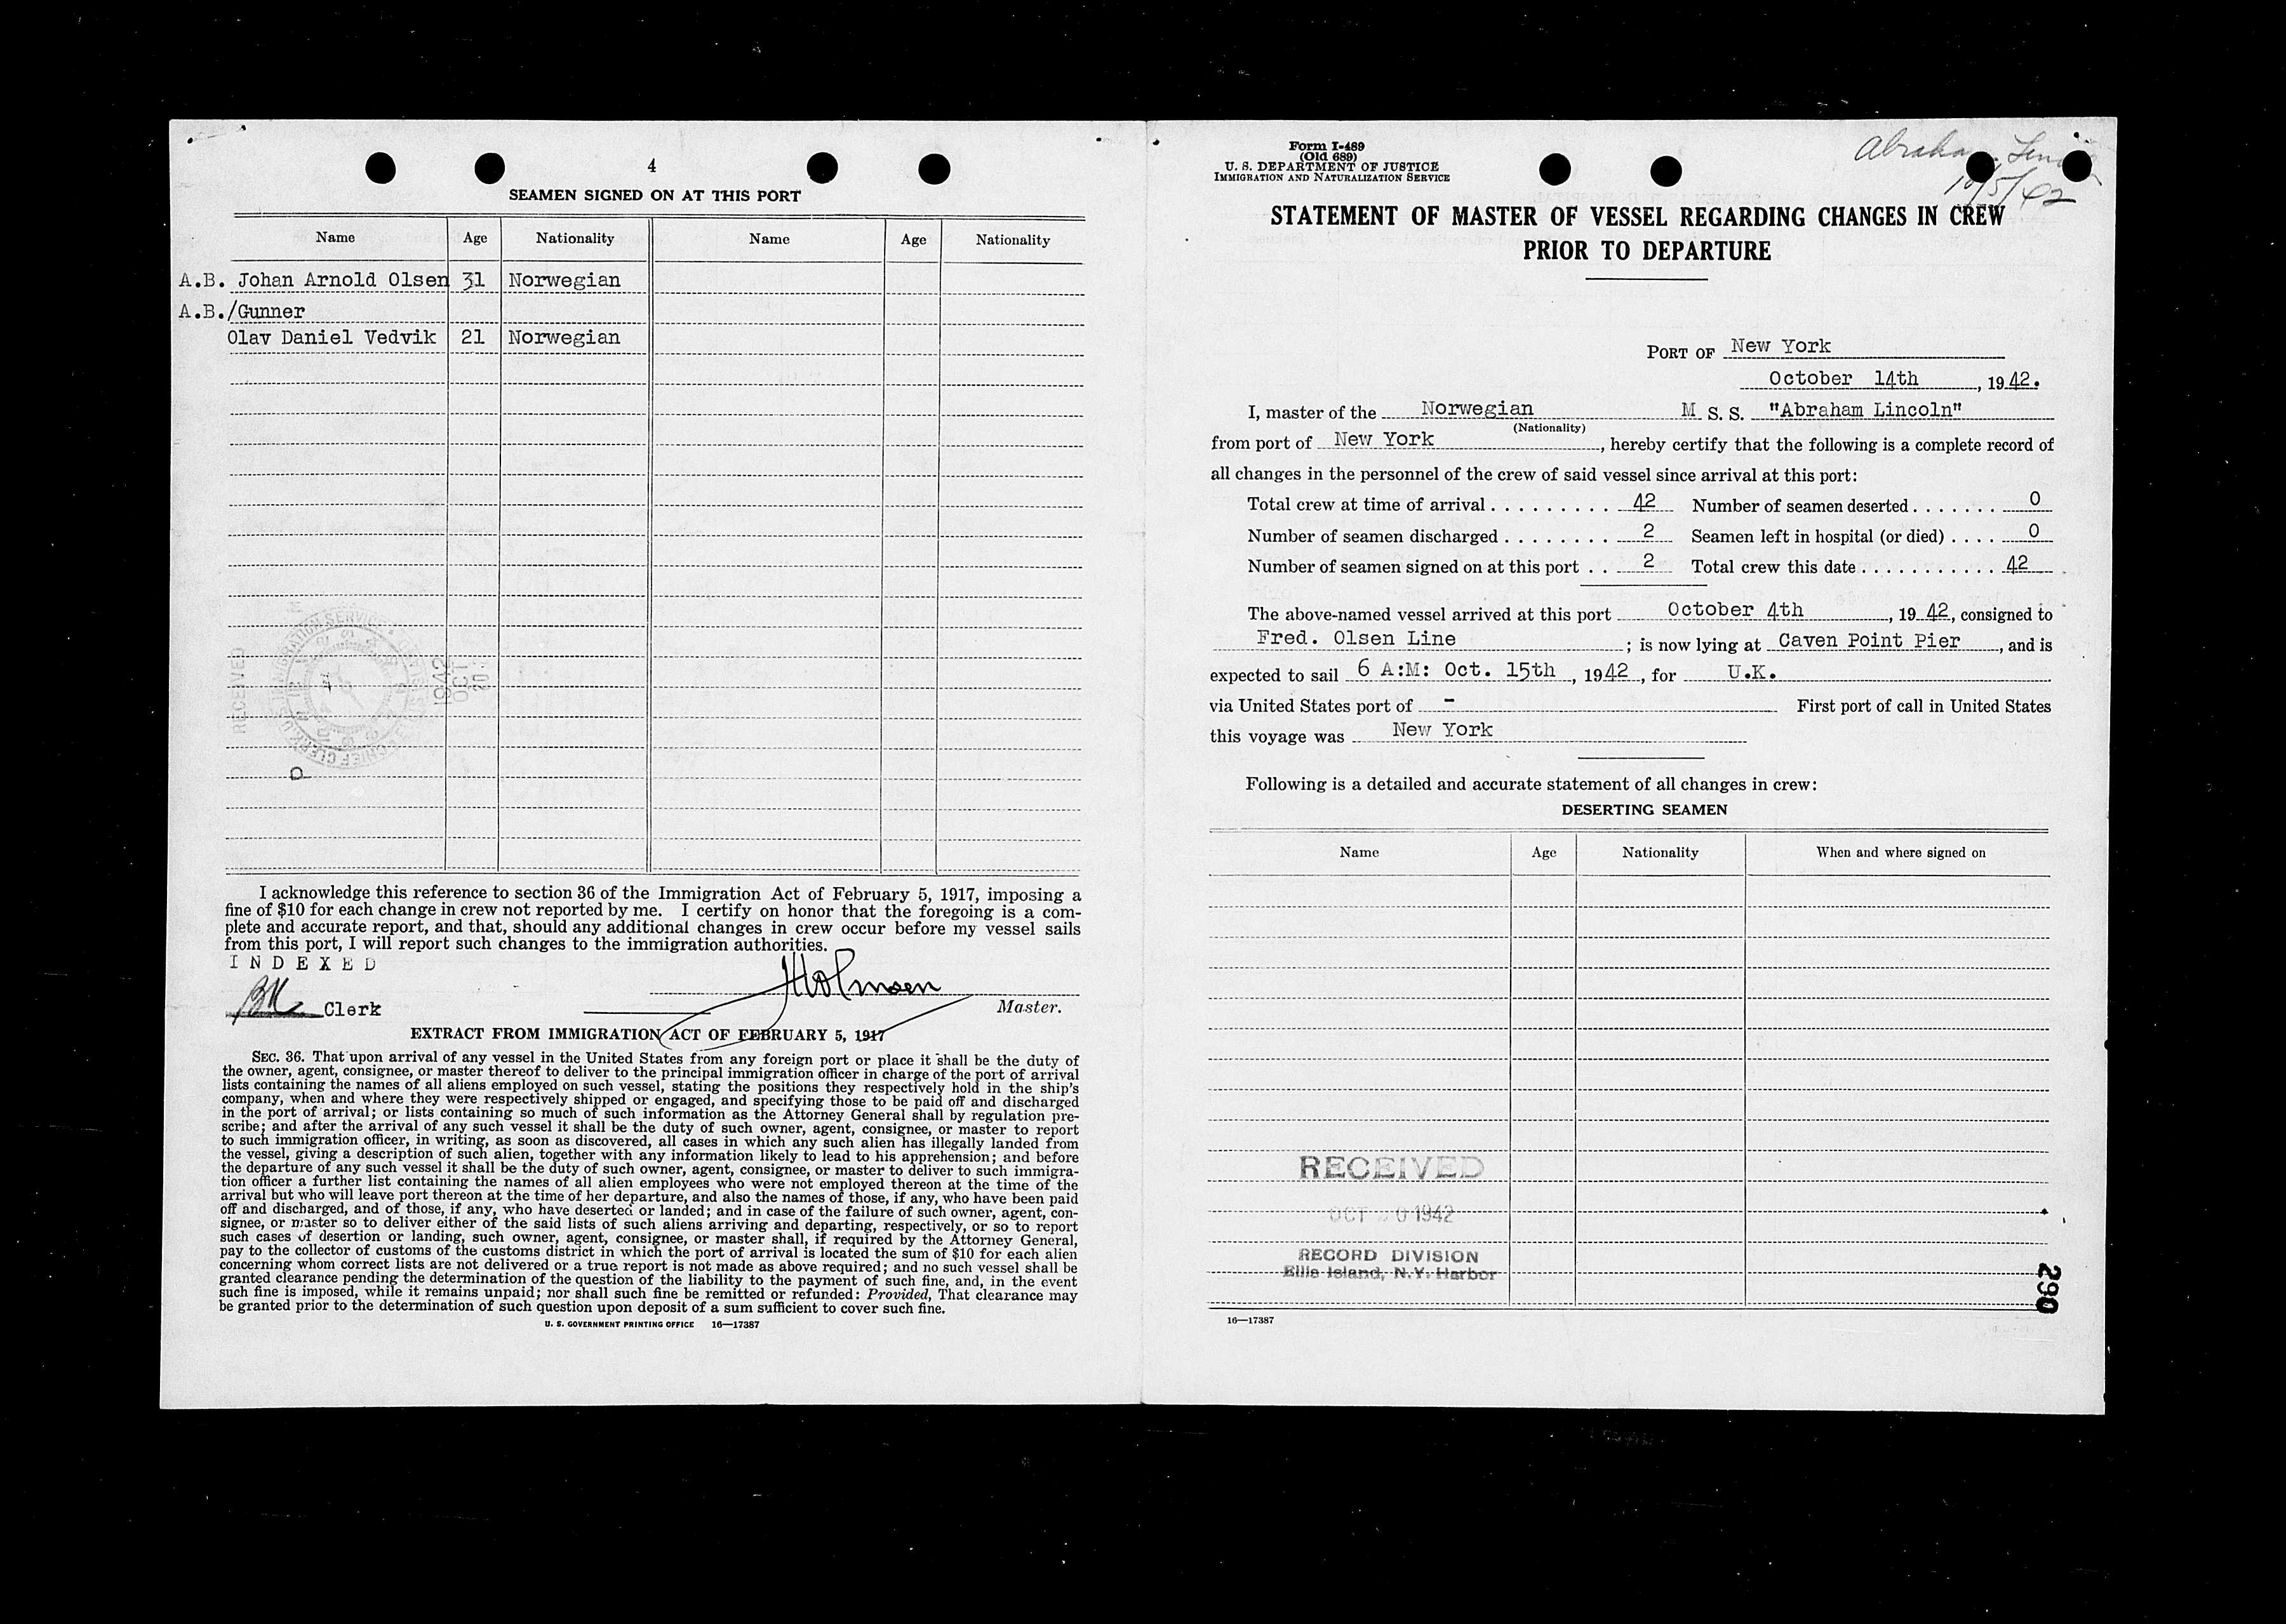 4
SEAMEN SIGNED ON AT THIS PORT
Name Age Nationality Name Age Nationality
A.B. Johan Arnold Olsen 31 Norwegian
A.B./Gunner
Olav Daniel Vedvik 21 Norwegian
RECEIVED
1942
OCT
20
P
I acknowledge this reference to section 36 of the Immigration Act of February 5, 1917, imposing a
fine of $10 for each change in crew not reported by me. I certify on honor that the foregoing is a com-
plete and accurate report, and that, should any additional changes in crew occur before my vessel sails
from this port, I will report such changes to the immigration authorities.
INDEXED
Clerk
Master.
EXTRACT FROM IMMIGRATION ACT OF FEBRUARY 5, 1917
SEC. 36. That upon arrival of any vessel in the United States from any foreign port or place it shall be the duty of
the owner, agent, consignee, or master thereof to deliver to the principal immigration officer in charge of the port of arrival
lists containing the names of all aliens employed on such vessel, stating the positions they respectively hold in the ship's
company, when and where they were respectively shipped or engaged, and specifying those to be paid off and discharged
in the port of arrival; or lists containing so much of such information as the Attorney General shall by regulation pre-
scribe; and after the arrival of any such vessel it shall be the duty of such owner, agent, consignee, or master to report
to such immigration officer, in writing, as soon as discovered, all cases in which any such alien has illegally landed from
the vessel, giving a description of such alien, together with any information likely to lead to his apprehension; and before
the departure of any such vessel it shall be the duty of such owner, agent, consignee, or master to deliver to such immigra-
tion officer a further list containing the names of all alien employees who were not employed thereon at the time of the
arrival but who will leave port thereon at the time of her departure, and also the names of those, if any, who have been paid
off and discharged, and of those, if any, who have deserted or landed; and in case of the failure of such owner, agent, con-
signee, or master so to deliver either of the said lists of such aliens arriving and departing, respectively, or so to report
such cases of desertion or landing, such owner, agent, consignee, or master shall, if required by the Attorney General,
pay to the collector of customs of the customs district in which the port of arrival is located the sum of $10 for each alien
concerning whom correct lists are not delivered or a true report is not made as above required; and no such vessel shall be
granted clearance pending the determination of the question of the liability to the payment of such fine, and, in the event
such fine is imposed, while it remains unpaid; nor shall such fine be remitted or refunded: Provided, That clearance may
be granted prior to the determination of such question upon deposit of a sum sufficient to cover such fine.
U. S. GOVERNMENT PRINTING OFFICE 16—17387
Form I-489
(Old 689)
U. S. DEPARTMENT OF JUSTICE
IMMIGRATION AND NATURALIZATION SERVICE
10/5/42
STATEMENT OF MASTER OF VESSEL REGARDING CHANGES IN CREW
PRIOR TO DEPARTURE
PORT OF New York
October 14th, 1942.
I, master of the Norwegian M S. S. "Abraham Lincoln"
(Nationality)
from port of New York, hereby certify that the following is a complete record of
all changes in the personnel of the crew of said vessel since arrival at this port:
Total crew at time of arrival . . . . . . . . . 42 Number of seamen deserted . . . . . . . 0
Number of seamen discharged . . . . . . . . 2 Seamen left in hospital (or died) . . . . 0
Number of seamen signed on at this port . . 2 Total crew this date . . . . . . . . . . . 42
The above-named vessel arrived at this port October 4th, 1942, consigned to
Fred. Olsen Line; is now lying at Caven Point Pier, and is
expected to sail 6 A:M: Oct. 15th, 1942, for U.K.
via United States port of - First port of call in United States
this voyage was New York
Following is a detailed and accurate statement of all changes in crew:
DESERTING SEAMEN
Name Age Nationality When and where signed on
RECEIVED
OCT 20 1942
RECORD DIVISION
Ellis Island, N.Y. Harbor
290
16—17387